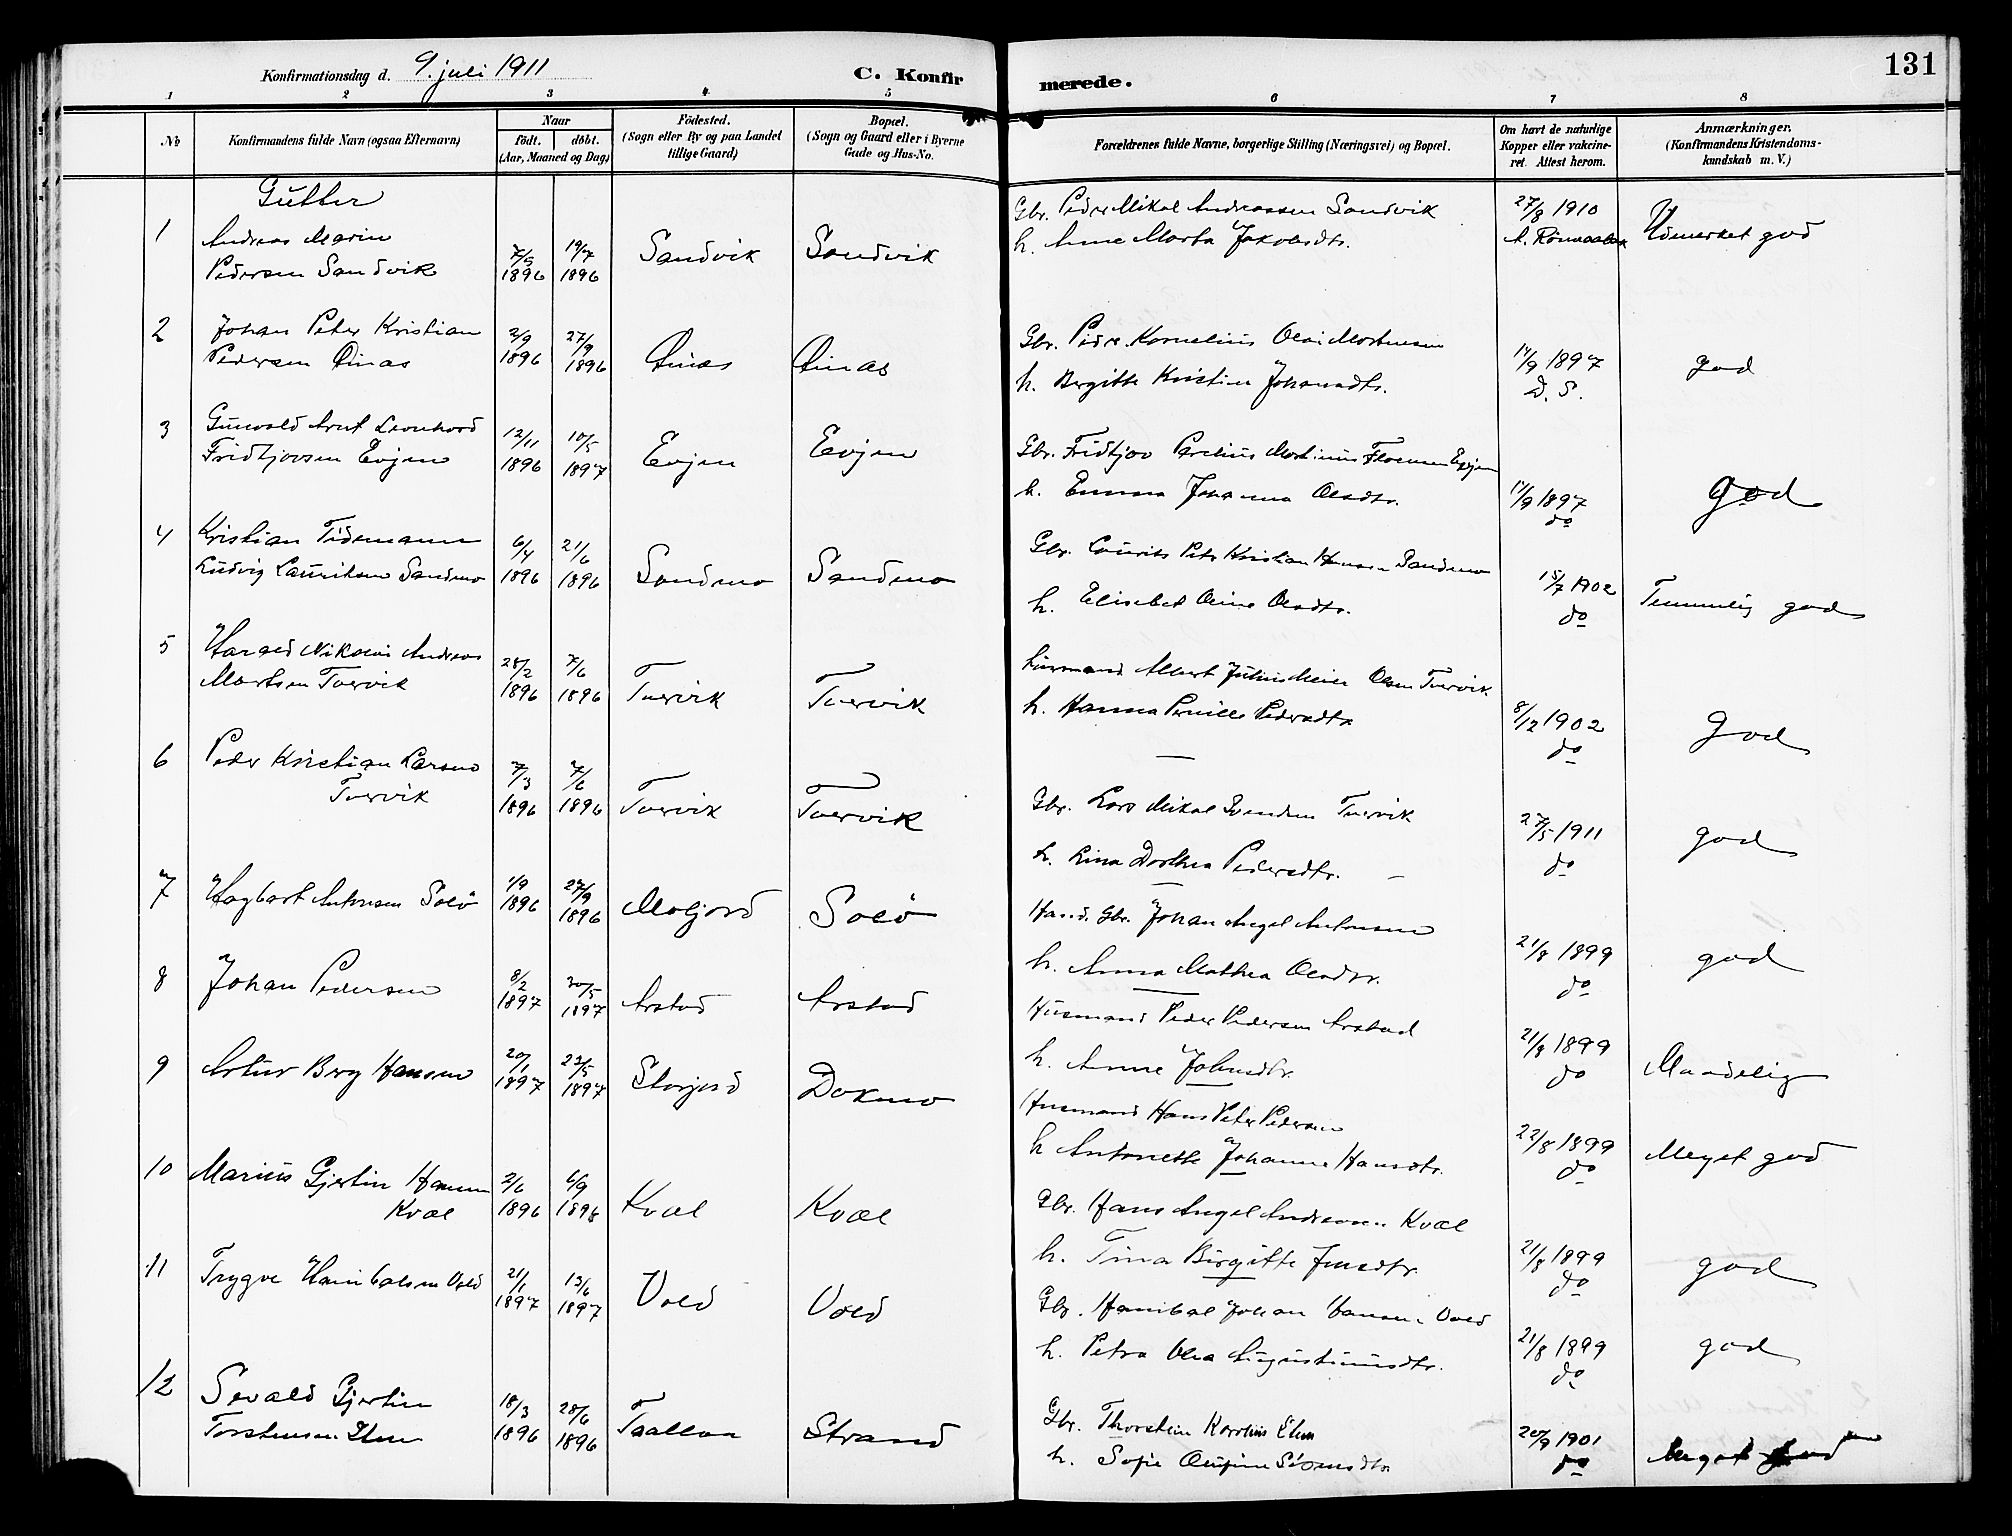 Konfirmationsdag d. 9. juli 1911
C. Konfirmerede.
131
1 2 3 4 5 6 7 8
No
Konfirmandens fulde Navn (ogsaa Efternavn)
Naar
födt. döbt.
(Aar, Maaned og Dag)
Födested.
(Sogn eller By og paa Landet
tillige Gaard)
Bopæl.
(Sogn og Gaard eller i Byerne
Gade og Hus-No.
Forældrenes fulde Navne, borgerlige Stilling (Næringsvei) og Bopæl.
Om havt de naturlige
Kopper eller vakcine-
ret. Attest herom.
Anmærkninger.
(Konfirmandens Kristendoms-
kundskab m. V.)
Gutter
1 Andreas Marin
Pedersen Sandvik 7/5 1896 19/7 1896 Sandvik Sandvik
Gbr. Peder Mikal Andreassen Sandvik
h. Anne Marta Jakobsdtr.
27/8 1910
Udmerket god
2 Johan Peter Kristian
Pedersen 2/9 1896 27/9 1896
Gbr. Peder Kornelius Olai Mortensen
h. Birgitte Kristine Johansdtr.
14/9 1897
D. S.
god
3 Gunvald Arnt Leonhard
Fridtjovsen Evjen 12/11 1896 10/5 1897 Evjen Evjen
Gbr. Fridtjov Parelius Martinus Evjen
h. Emma Johanna Olsdtr.
14/9 1897
do
god
4 Kristian Tidemann
Ludvig Lauritsen Sandmo 6/4 1896 21/6 1896 Sandmo Sandmo
Gbr. Laurits Peter Kristian Hansen Sandmo
h. Elisabet Oline Olsdtr.
15/7 1902
do
Temmelig god
5 Harald Nikolai Andreas
Tvervik 28/2 1896 7/6 1896 Tvervik Tvervik
Albert Julius Meier Olsen Tvervik
h. Hanna Pernille Pedersdtr
8/12 1902
do
god
6 Peder Kristian Larsen
Tvervik 7/3 1896 7/6 1896 Tvervik Tvervik
Gbr. Lars Mikal Svendsen Tvervik
h. Lina Dorthea Pedersdtr.
27/5 1911
do
god
7 Hagbart Antonsen Solö 1/9 1896 27/9 1896 Moljord Solö
Gbr. Johan Angel Antonsen
h. Anna Mathea Olsdtr.
21/8 1899
do
god
8 Johan Pedersen 8/2 1897 30/5 1897 Arstad Arstad
Husmand Peder Pedersen Arstad
h. Anne Johnsdtr.
21/8 1899
do
Maadelig
9 Artur Berg Hansen 20/1 1897 23/5 1897 Storjord Dokmo
Husmand Hans Peter Pedersen
h Antonette Johanne Hansdtr.
22/8 1899
do
Meget god
10 Marius Gjertin Hansen
Kvæl 2/6 1896 6/9 1896 Kvæl Kvæl
Gbr. Hans Angel Andreasen Kvæl
h. Tina Birgitte Jensdtr.
21/8 1899
do
god
11 Trygve Hanibalsen Vold 21/1 1897 13/6 1897 Vold Vold
Gbr. Hanibal Johan Hansen Vold
h. Petra Olea Augustinusdtr.
21/8 1899
do
god
12 Sevald Gjertin
Torstensen Elven 18/3 1896 28/6 1896 Strand
Gbr. Thorstein Karolius Elven
h. Sofie
20/9 1901
do
Meget god